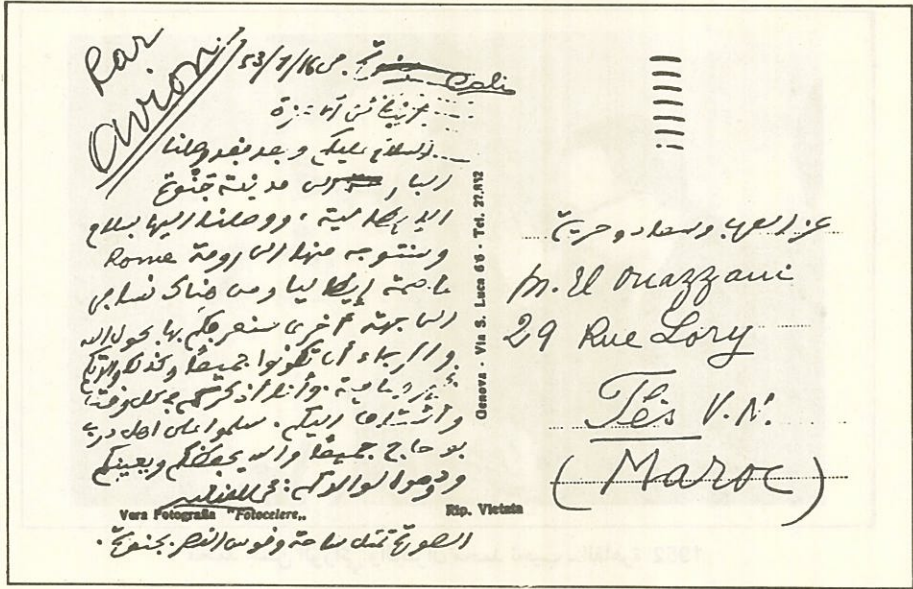 Par
Avion
53/7/16 جنوة في
السلام عليكم وبعد فقد وصلنا
البا إلى مدينة جنوة
الإيطالية، ووصلنا إليها بسلام
وسنتوجه منها إلى رومة Rome
عاصمة إيطاليا ومن هناك نسا
إلى جهة أخرى سنعرفكم بها بحول الله
والرجاء أن تكونوا جميعا وكذلك والدتكم
بخير وعافية. وأنا أذكركم في كل وقت
وأشتاق إليكم. سلموا على أهل درب
بو حاج جميعا والله يحفظكم ويعينكم
ودوموا لوالدكم:
Vera Fotografia "Fotocelere„
Rip. Vietata
الصورة تمثل ساحة وقوس النصر بجنوة.
Genova - Via S. Luca 66 - Tel. 27.812
عز العرب وسعاد وحرية
M. El Ouazzani
29 Rue Lory
Fès V.N.
(Maroc)